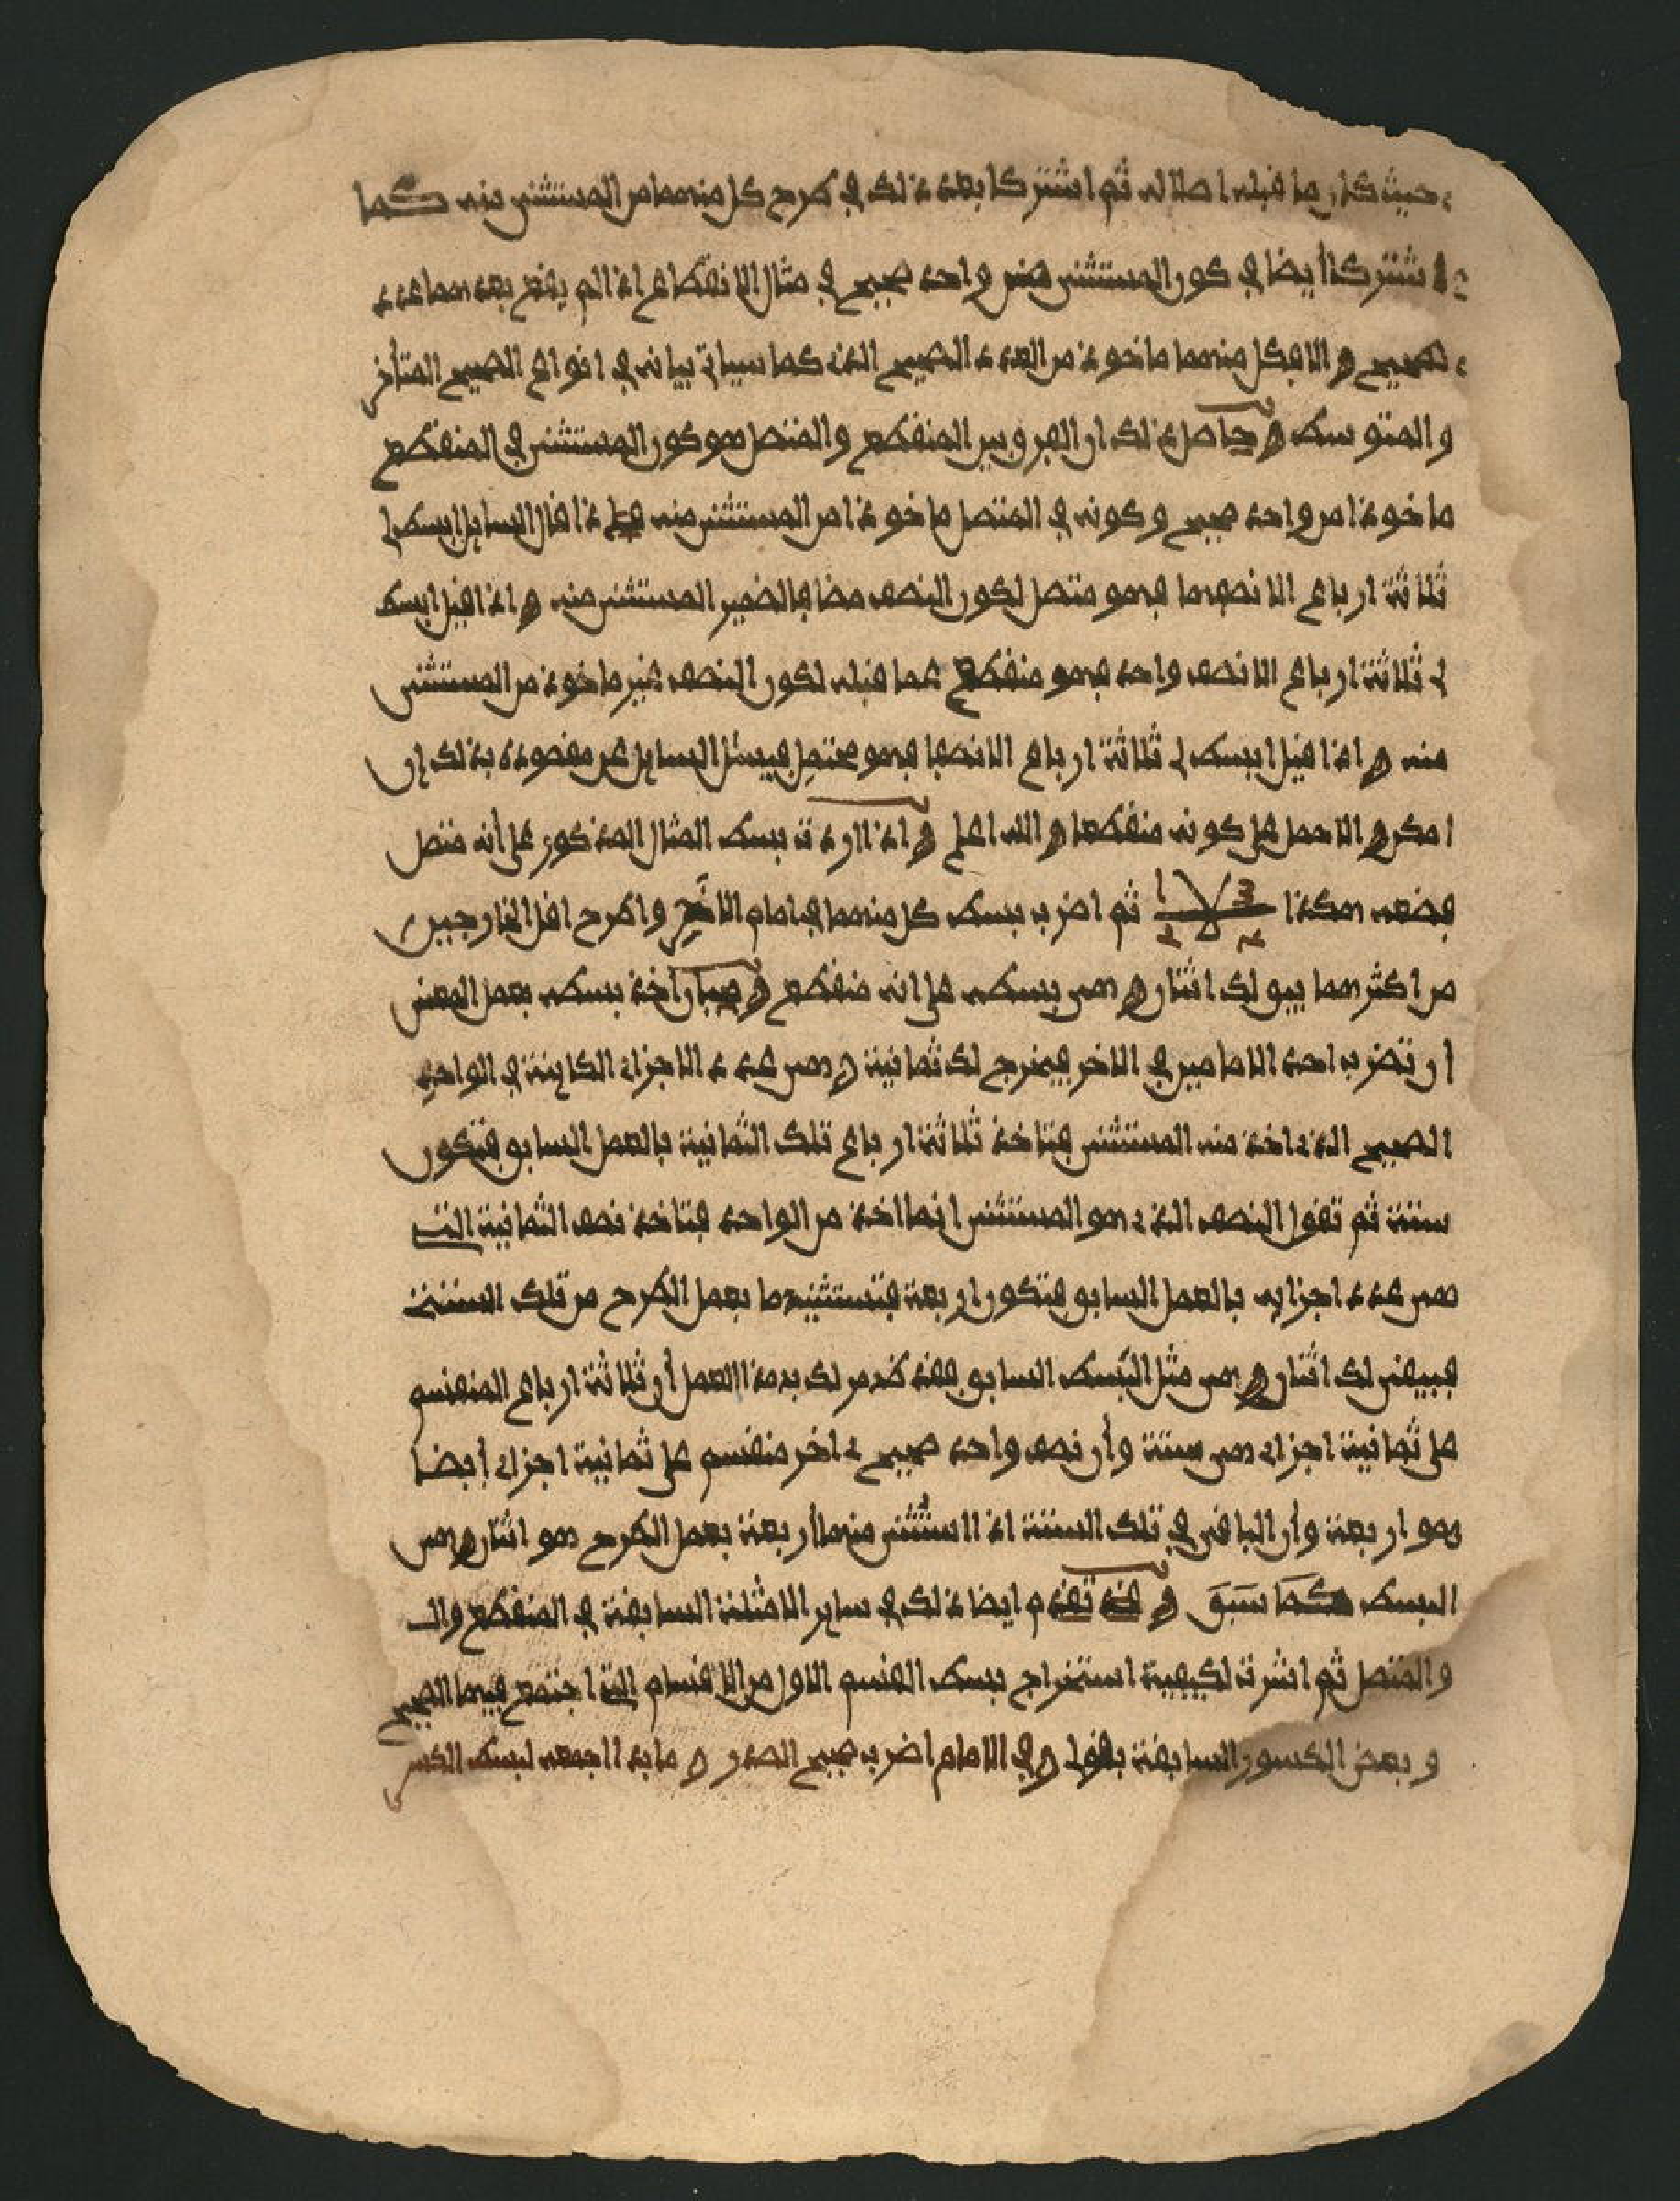 حيث كان ما قبله اصلا له ثم اشتركا بعد ذلك في طرح كل منهما من المستثنى منه كما
اشتركا أيضا في كون المستثنى من واحد صحيح في مثال الانقطاع اذا لم يقع بعدهما عدد
صحيح والا فكل منهما ماخوذ من العدد الصحيح الذي كما سياتي بيانه في انواع الصحيح المتأخر
والمتوسط وحاصل ذلك ان الفرق بين المنقطع والمتصل هو كون المستثنى في المنقطع
ماخوذا من واحد صحيح وكونه في المتصل ماخوذا من المستثنى منه فاذا قال السايل ابسط لي
ثلاثة ارباع الا نصفها فهو متصل لكون النصف مضافا لضمير المستثنى منه واذا قيل ابسط
لي ثلاثة ارباع الا نصف واحد فهو منقطع عما قبله لكون النصف غير ماخوذ من المستثنى
منه واذا قيل ابسط لي ثلاثة ارباع الا نصفا فهو محتمل فيسئل السايل عن مقصوده بذلك ان
امكن والا حمل على كونه منقطعا والله اعلم واذا اردت بسط المثال المذكور على أنه متصل
فضعه هكذا ثم اضرب بسط كل منهما في امام الاخر واطرح اقل الخارجين
من اكثرهما يبق لك اثنان وهي بسطه على انه منقطع وصار اخذ بسطه بعمل المعنى
ان تضرب احد الامامين في الاخر فيخرج لك ثمانية وهي عدد الاجزاء الكاينة في الواحد
الصحيح الذي اخذ منه المستثنى فتاخذ ثلاثة ارباع تلك الثمانية بالعمل السابق فتكون
ستة ثم تقول النصف الذي هو المستثنى انما اخذ من الواحد فتاخذ نصف الثمانية التي
هي عدد اجزايه بالعمل السابق فتكون اربعة فتستثنيها بعمل الطرح من تلك الستة
فيبقى لك اثنان وهي مثل البسط السابق فقد ظهر لك بهذا العمل أن ثلاثة ارباع المنقسم
على ثمانية اجزاء هي ستة وأن نصف واحد صحيح اخر منقسم على ثمانية اجزاء أيضا
هو اربعة وأن الباقي في تلك الستة اذا استثنى منها أربعة بعمل الطرح هو اثنان وهي
البسط كما سبق وقد تقدم ايضا ذلك في ساير الامثلة السابقة في المنقطع والـ
والمتصل ثم اشرت لكيفية استخراج بسط القسم الاول من الاقسام التي اجتمع فيها الصحيح
وبعض الكسور السابقة بقولي وفي الامام اضرب صحيح الصدر وما بدا اجمعه لبسط الكسر